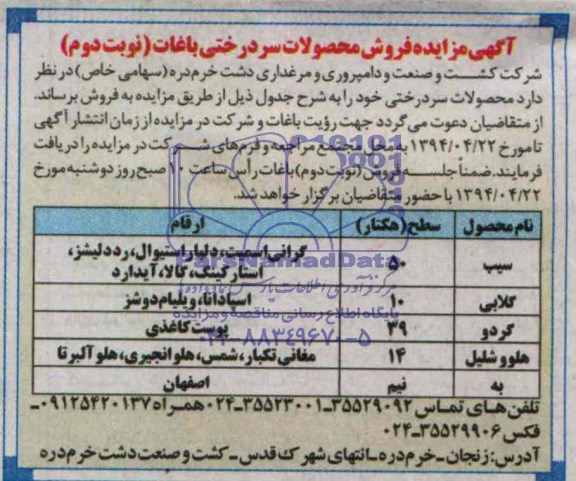 آگهی مزایده فروش محصولات سردرختی باغات (نوبت دوم)
شرکت کشت و صنعت و دامپروری و مرغداری دشت خرم‌دره (سهامی خاص) در نظر
دارد محصولات سردرختی خود را به شرح جدول ذیل از طریق مزایده به فروش برساند.
از متقاضیان دعوت می‌گردد جهت رؤیت باغات و شرکت در مزایده از زمان انتشار آگهی
تا مورخ ۱۳۹۴/۰۴/۲۲ به محل مجتمع مراجعه و فرم‌های شرکت در مزایده را دریافت
فرمایند. ضمناً جلسه فروش (نوبت دوم) باغات رأس ساعت ۱۰ صبح روز دوشنبه مورخ
۱۳۹۴/۰۴/۲۲ با حضور متقاضیان برگزار خواهد شد.
نام محصول سطح (هکتار) ارقام
سیب ۵۰ گرانی اسمیت، دلبار استیوال، رد دلیشز،
استارکینگ، گالا، آیدارد
ParsNamadData
گلابی ۱۰ اسپادانا، ویلیام دوشز
پایگاه اطلاع رسانی مناقصه و مزایده
گردو ۳۹ پوست کاغذی
۰۲۱-۸۸۳۴۹۶۷۰-۵
هلو و شلیل ۱۴ مغانی تکبار، شمس، هلو انجیری، هلو آلبرتا
به نیم اصفهان
تلفن های تماس ۳۵۵۲۹۰۹۲ـ۳۵۵۲۳۰۰۱ـ۰۲۴ همراه ۰۹۱۲۵۴۲۰۱۳۷ـ
فکس ۳۵۵۲۹۹۰۶ـ۰۲۴
آدرس: زنجان ـ خرم‌دره ـ انتهای شهرک قدس ـ کشت و صنعت دشت خرم‌دره